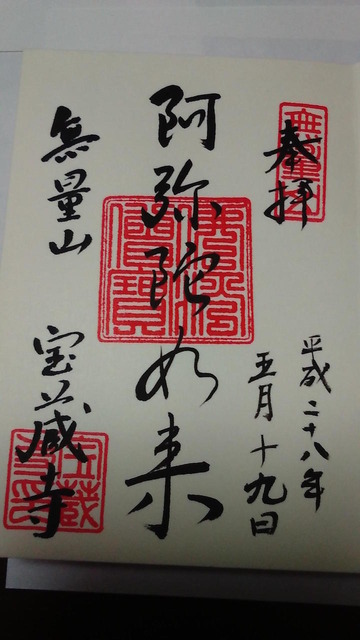 奉拝
平成二十八年
五月十九日
阿弥陀如来
佛法僧寶
無量山
宝蔵寺